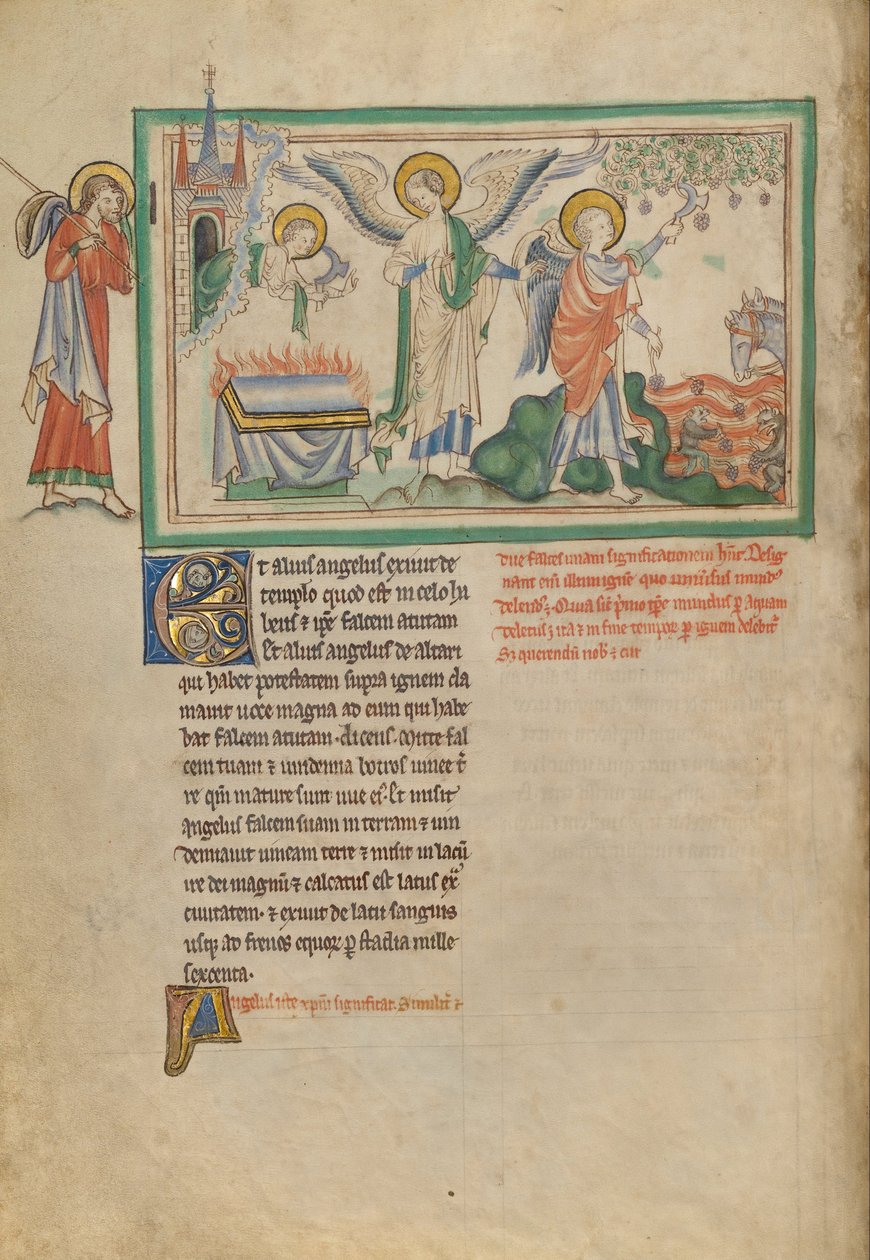 Et alius angelus exiuit de
templo quod est in celo ha
bens ⁊ ip̄e falcem acutam
Et alius angelus de altari
qui habet potestatem supra ignem cla
mauit uoce magna ad eum qui habe
bat falcem acutam. dicens. Mitte fal
cem tuam ⁊ uindemia botros uinee t̄
re qm̄ mature sunt uue eꝰ. Et misit
angelus falcem suam in terram ⁊ uin
demiauit uineam terre ⁊ misit in lacū
ire dei magnū ⁊ calcatus est lacus ex̄
ciuitatem. ⁊ exiuit de lacu sanguis
usqꝫ ad frenos equoꝝ ꝑ stadia mille
sexcenta.
Angelus iste xp̄m significat. Similit̄ ⁊
due falces unam significationem hn̄t. Desig
nant enī illum ignē quo uniuersus mund
delendꝰ ē. Quia sic̄ p̄mo tp̄e mundus ꝑ aquam
deletus ē ita ⁊ in fine tempoꝝ ꝑ ignem delebit̄
Sꝫ querendū nob̄ ē cur